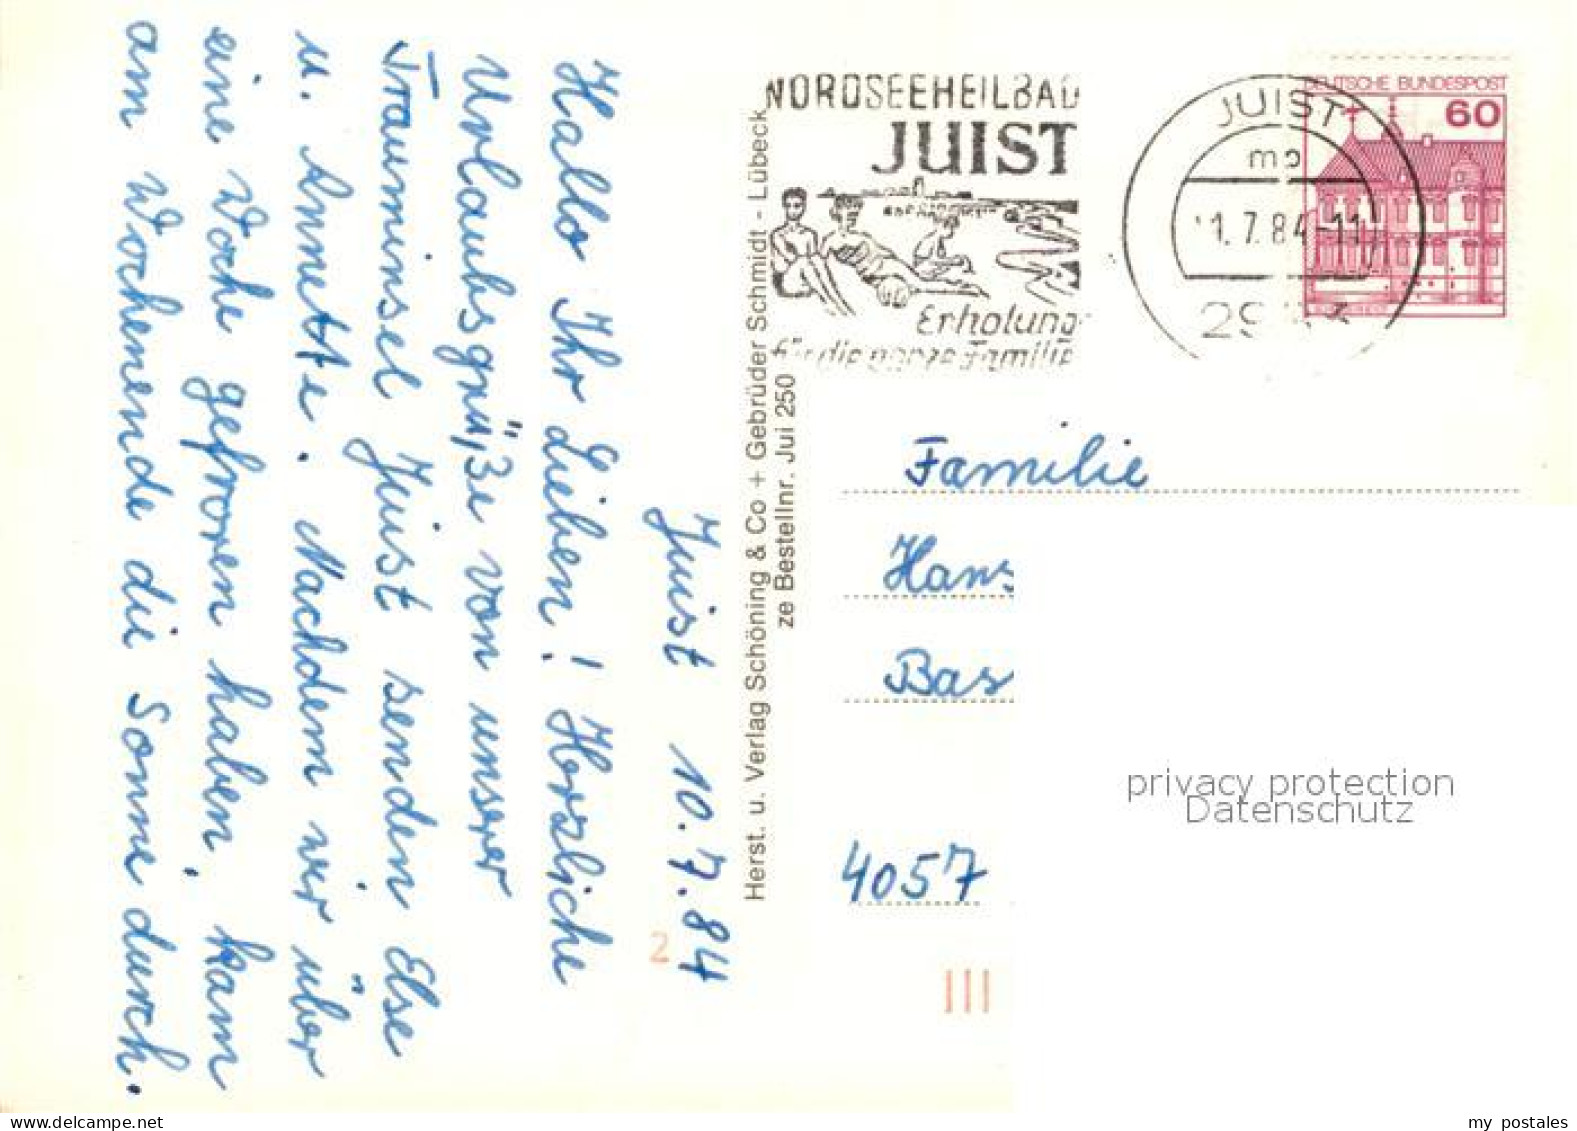 Juist 10.7.84
Hallo Ihr Lieben! Herzliche
Urlaubsgrüße von unserer
Trauminsel Juist senden Else
u. Annette. Nachdem wir über
eine Woche gefroren haben, kam
am Wochenende die Sonne durch.
Herst. u. Verlag Schöning & Co + Gebrüder Schmidt - Lübeck
ze Bestellnr. Jui 250
NORDSEEHEILBAD
JUIST
Erholung
für die ganze Familie
JUIST
11.7.84-11
DEUTSCHE BUNDESPOST
60
Familie
Hans
Bas
4057
2
III
privacy protection
Datenschutz
my postales